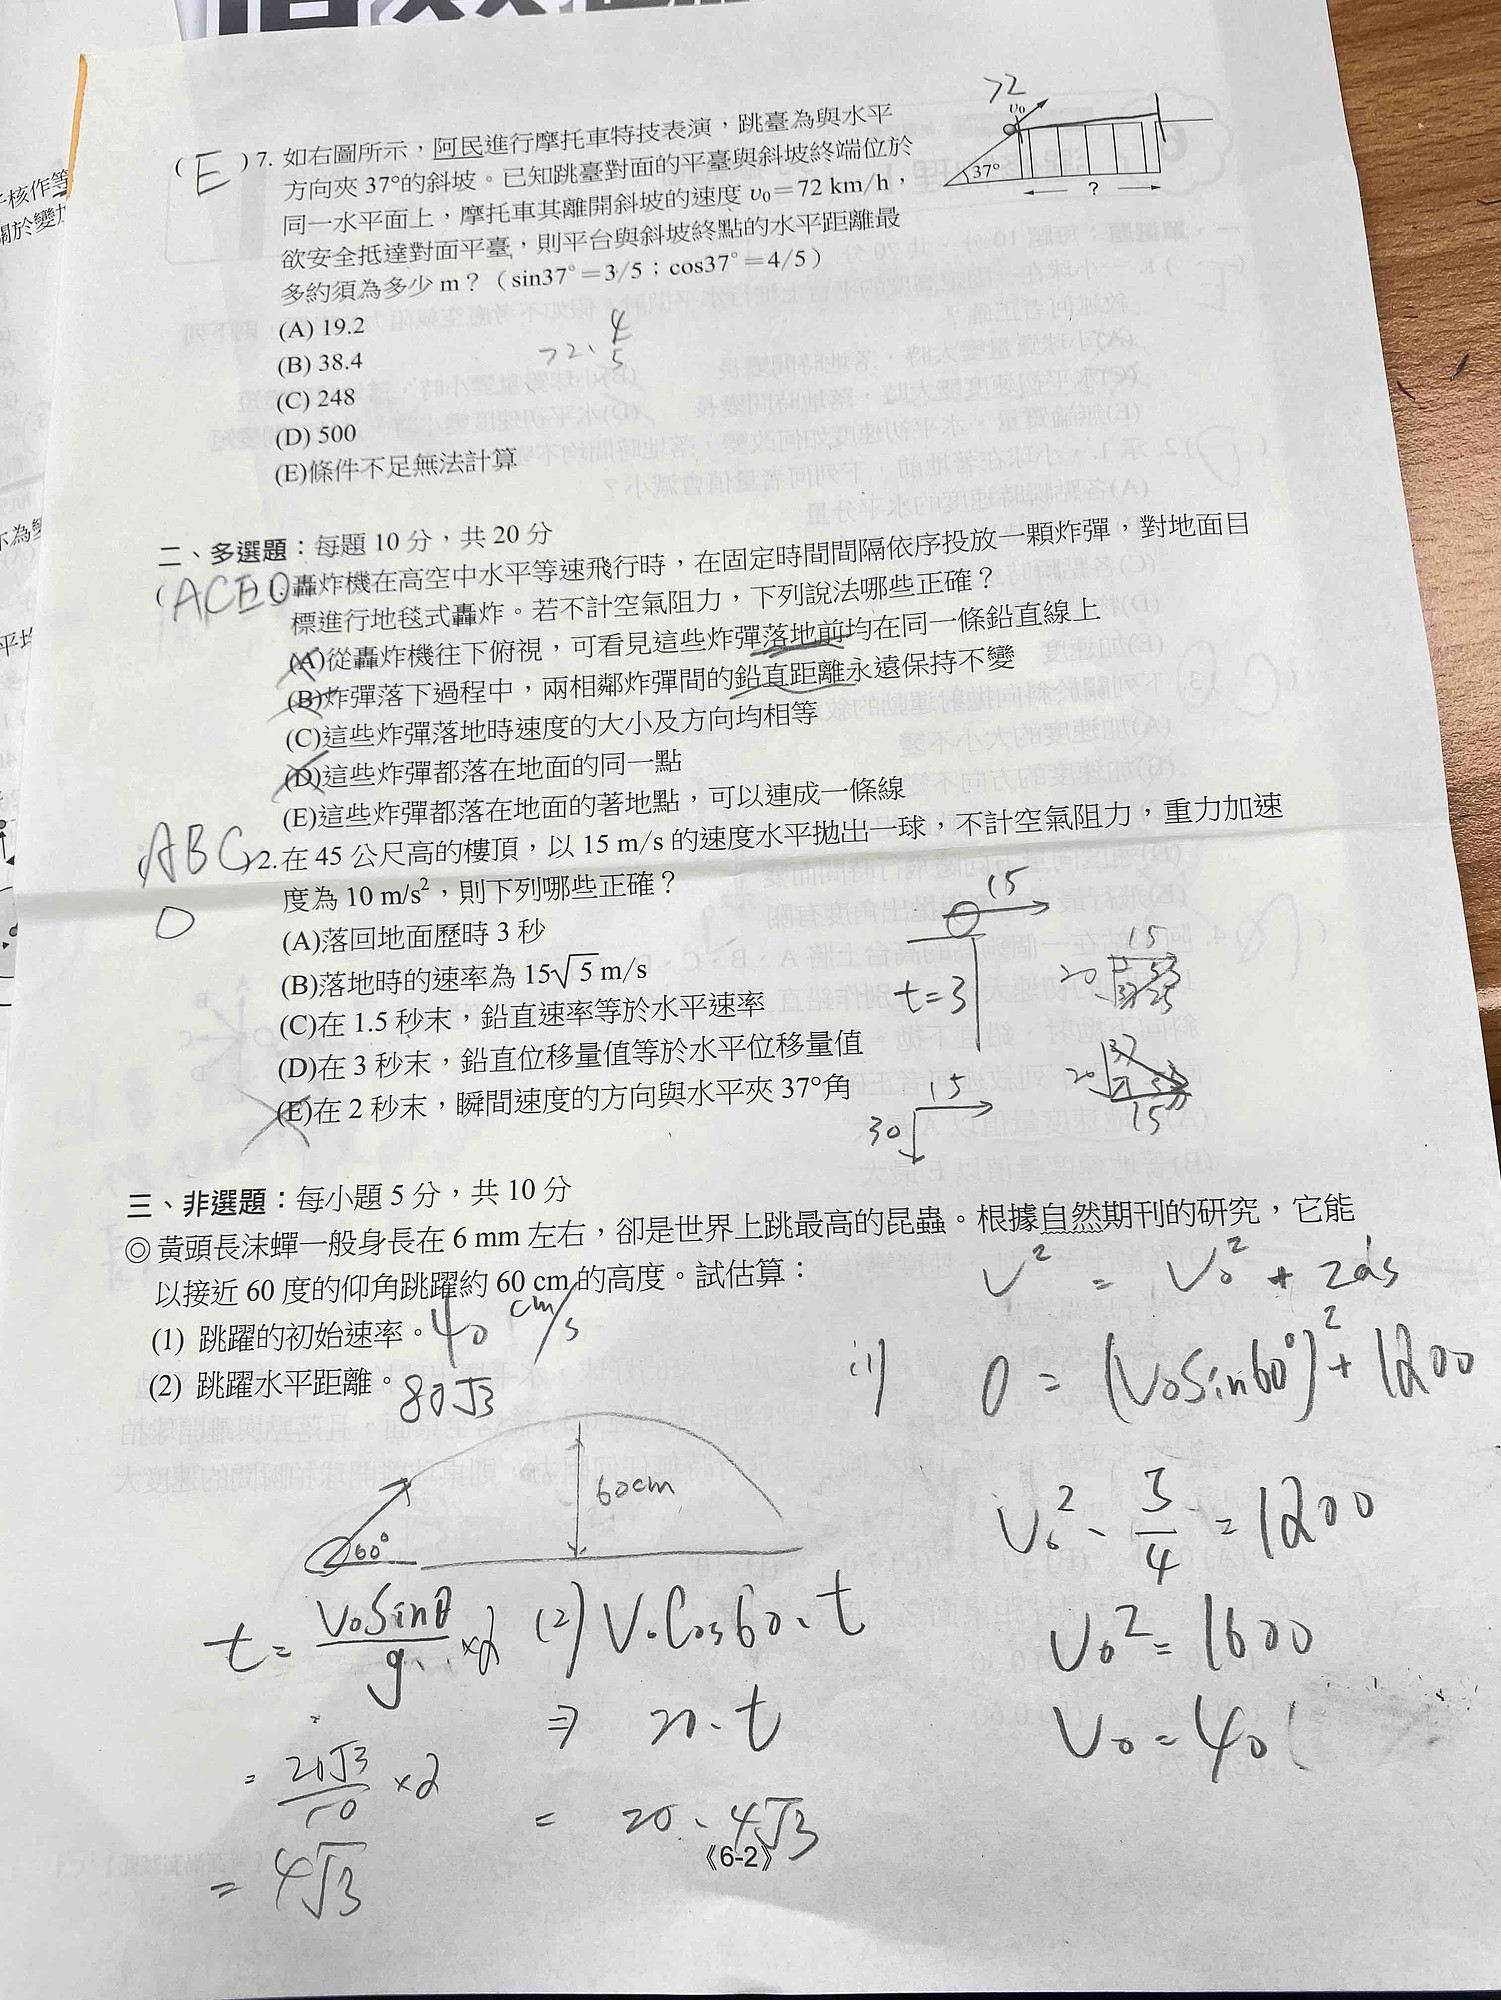 (E)7. 如右圖所示,阿民進行摩托車特技表演,跳臺為與水平
方向夾 37°的斜坡。已知跳臺對面的平臺與斜坡終端位於
同一水平面上,摩托車其離開斜坡的速度 υ₀=72 km/h,
欲安全抵達對面平臺,則平台與斜坡終點的水平距離最
多約須為多少 m?(sin37°=3/5;cos37°=4/5)
72
υ₀
37°
?
(A) 19.2
(B) 38.4
(C) 248
(D) 500
(E)條件不足無法計算
72 · 4/5
二、多選題:每題 10 分,共 20 分
(ACE)1.轟炸機在高空中水平等速飛行時,在固定時間間隔依序投放一顆炸彈,對地面目
標進行地毯式轟炸。若不計空氣阻力,下列說法哪些正確?
(A)從轟炸機往下俯視,可看見這些炸彈落地前均在同一條鉛直線上
(B)炸彈落下過程中,兩相鄰炸彈間的鉛直距離永遠保持不變
(C)這些炸彈落地時速度的大小及方向均相等
(D)這些炸彈都落在地面的同一點
(E)這些炸彈都落在地面的著地點,可以連成一條線
(ABC)2.在 45 公尺高的樓頂,以 15 m/s 的速度水平拋出一球,不計空氣阻力,重力加速
D
度為 10 m/s²,則下列哪些正確?
(A)落回地面歷時 3 秒
(B)落地時的速率為 15√5 m/s
(C)在 1.5 秒末,鉛直速率等於水平速率
(D)在 3 秒末,鉛直位移量值等於水平位移量值
(E)在 2 秒末,瞬間速度的方向與水平夾 37°角
15
t=3
15
20
15
30
20
15
三、非選題:每小題 5 分,共 10 分
◎ 黃頭長沫蟬一般身長在 6 mm 左右,卻是世界上跳最高的昆蟲。根據自然期刊的研究,它能
以接近 60 度的仰角跳躍約 60 cm 的高度。試估算:
(1) 跳躍的初始速率。40 cm/s
(2) 跳躍水平距離。80√3
v² = v₀² + 2as
(1) 0 = (v₀sin60°)² + 1200
v₀² · 3/4 = 1200
v₀² = 1600
v₀ = 40
60cm
60°
t = v₀sinθ/g ×2
= 20√3/10 ×2
= 4√3
(2) v₀cos60 · t
⇒ 20 · t
= 20 · 4√3
《6-2》